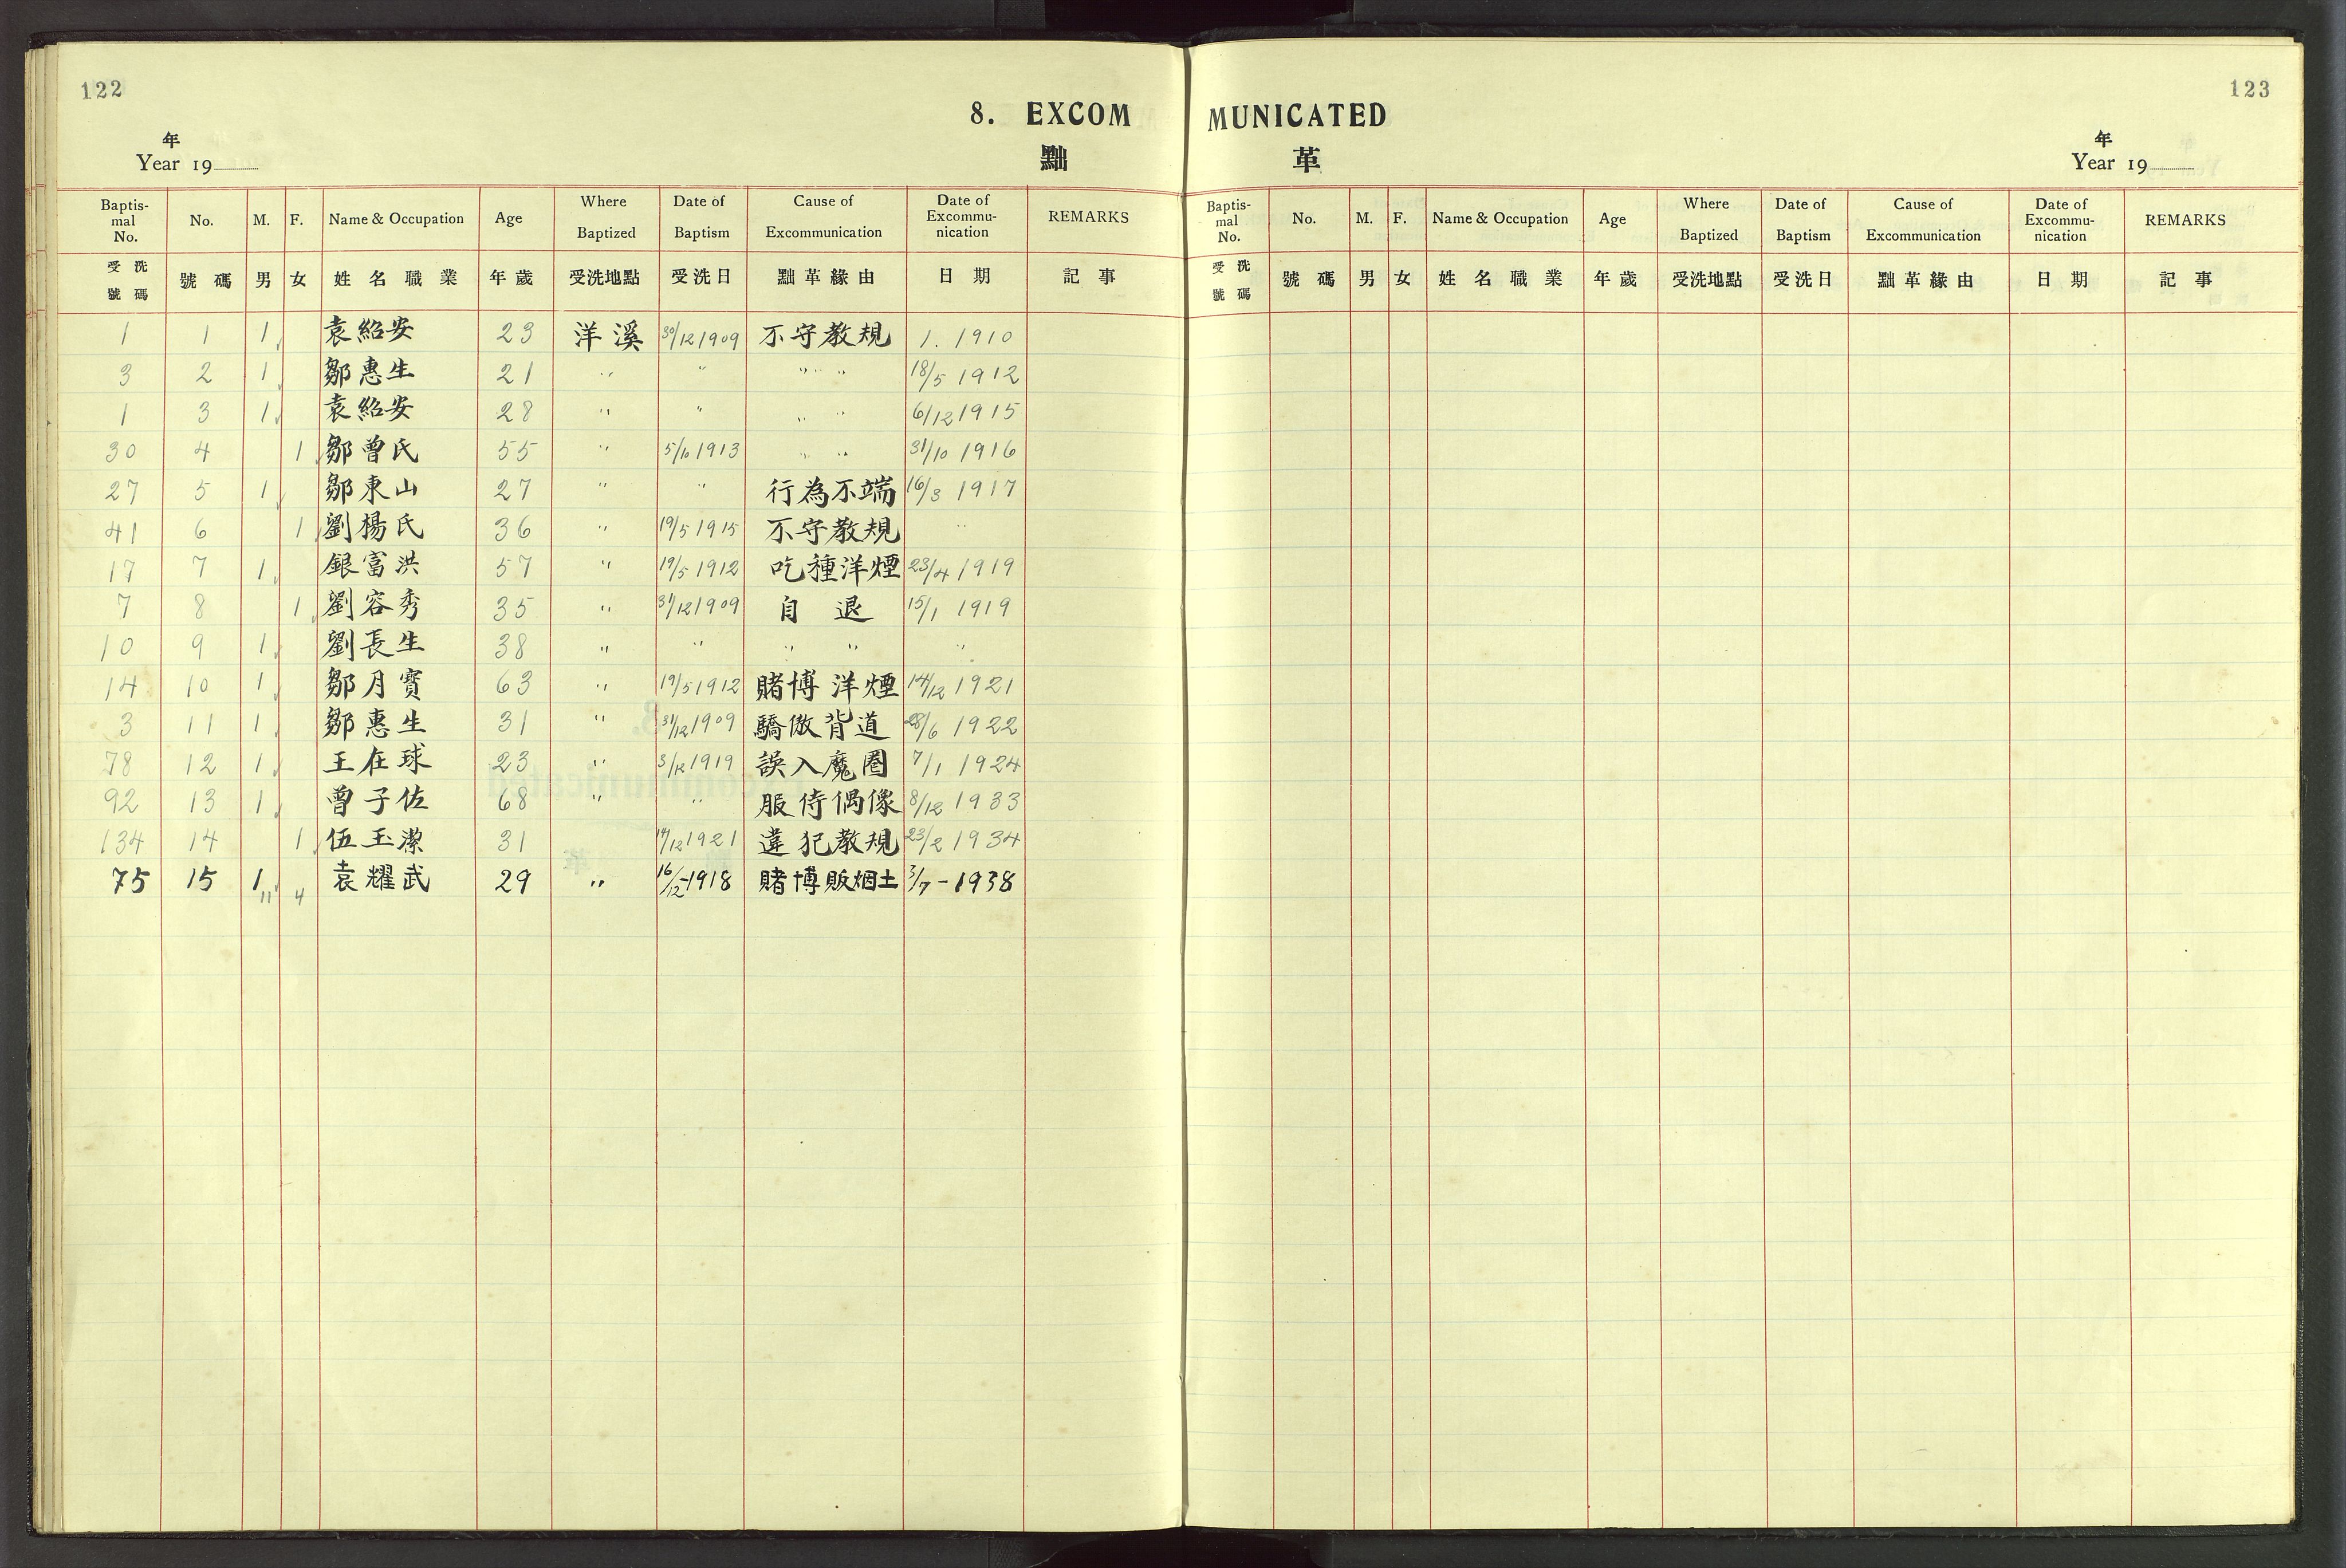 122
8. EXCOM
黜
年
Year 19
Baptismal No. No. M. F. Name & Occupation Age Where Baptized Date of Baptism Cause of Excommunication Date of Excommunication REMARKS
受洗號碼 號碼 男 女 姓名職業 年歲 受洗地點 受洗日 黜革緣由 日期 記事
1 1 1 袁紹安 23 洋溪 30/12 1909 不守教規 1. 1910
3 2 1 鄒惠生 21 " " " " " 18/5 1912
1 3 1 袁紹安 28 " " " " 6/12 1915
30 4 1 鄒曾氏 55 " 5/10 1913 " " 31/10 1916
27 5 1 鄒東山 27 " " 行為不端 16/3 1917
41 6 1 劉楊氏 36 " 19/5 1915 不守教規 "
17 7 1 銀富洪 57 " 19/5 1912 吃種洋煙 23/4 1919
7 8 1 劉容秀 35 " 31/12 1909 自退 15/1 1919
10 9 1 劉長生 38 " " " " "
14 10 1 鄒月寶 63 " 19/5 1912 賭博洋煙 14/12 1921
3 11 1 鄒惠生 31 " 31/12 1909 驕傲背道 28/6 1922
78 12 1 王在球 23 " 3/12 1919 誤入魔圈 7/1 1924
92 13 1 曾子佐 68 " " 服侍偶像 8/12 1933
134 14 1 伍玉潔 31 /12 1921 違犯教規 23/2 1934
75 15 1 袁耀武 29 " 16/12-1918 賭博販烟土 3/7-1938
11 4
123
MUNICATED
革
年
Year 19
Baptismal No. No. M. F. Name & Occupation Age Where Baptized Date of Baptism Cause of Excommunication Date of Excommunication REMARKS
受洗號碼 號碼 男 女 姓名職業 年歲 受洗地點 受洗日 黜革緣由 日期 記事